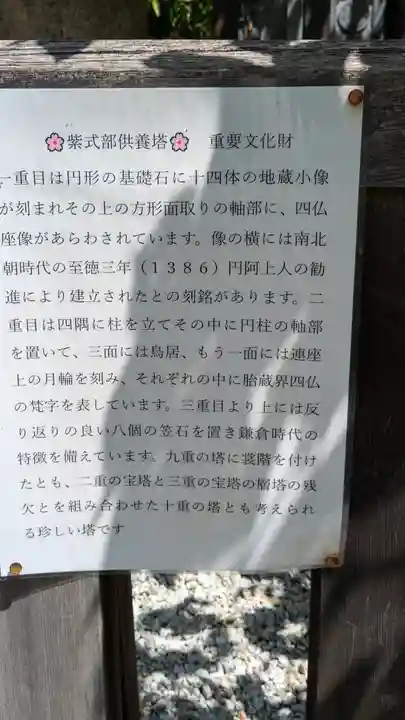 🌸紫式部供養塔🌸 重要文化財
一重目は円形の基礎石に十四体の地蔵小像
が刻まれその上の方形面取りの軸部に、四仏
座像があらわされています。像の横には南北
朝時代の至徳三年（１３８６）円阿上人の勧
進により建立されたとの刻銘があります。二
重目は四隅に柱を立てその中に円柱の軸部
を置いて、三面には鳥居、もう一面には連座
上の月輪を刻み、それぞれの中に胎蔵界四仏
の梵字を表しています。三重目より上には反
り返りの良い八個の笠石を置き鎌倉時代の
特徴を備えています。九重の塔に裳階を付け
たとも、二重の宝塔と三重の宝塔の層塔の残
欠とを組み合わせた十重の塔とも考えられ
る珍しい塔です